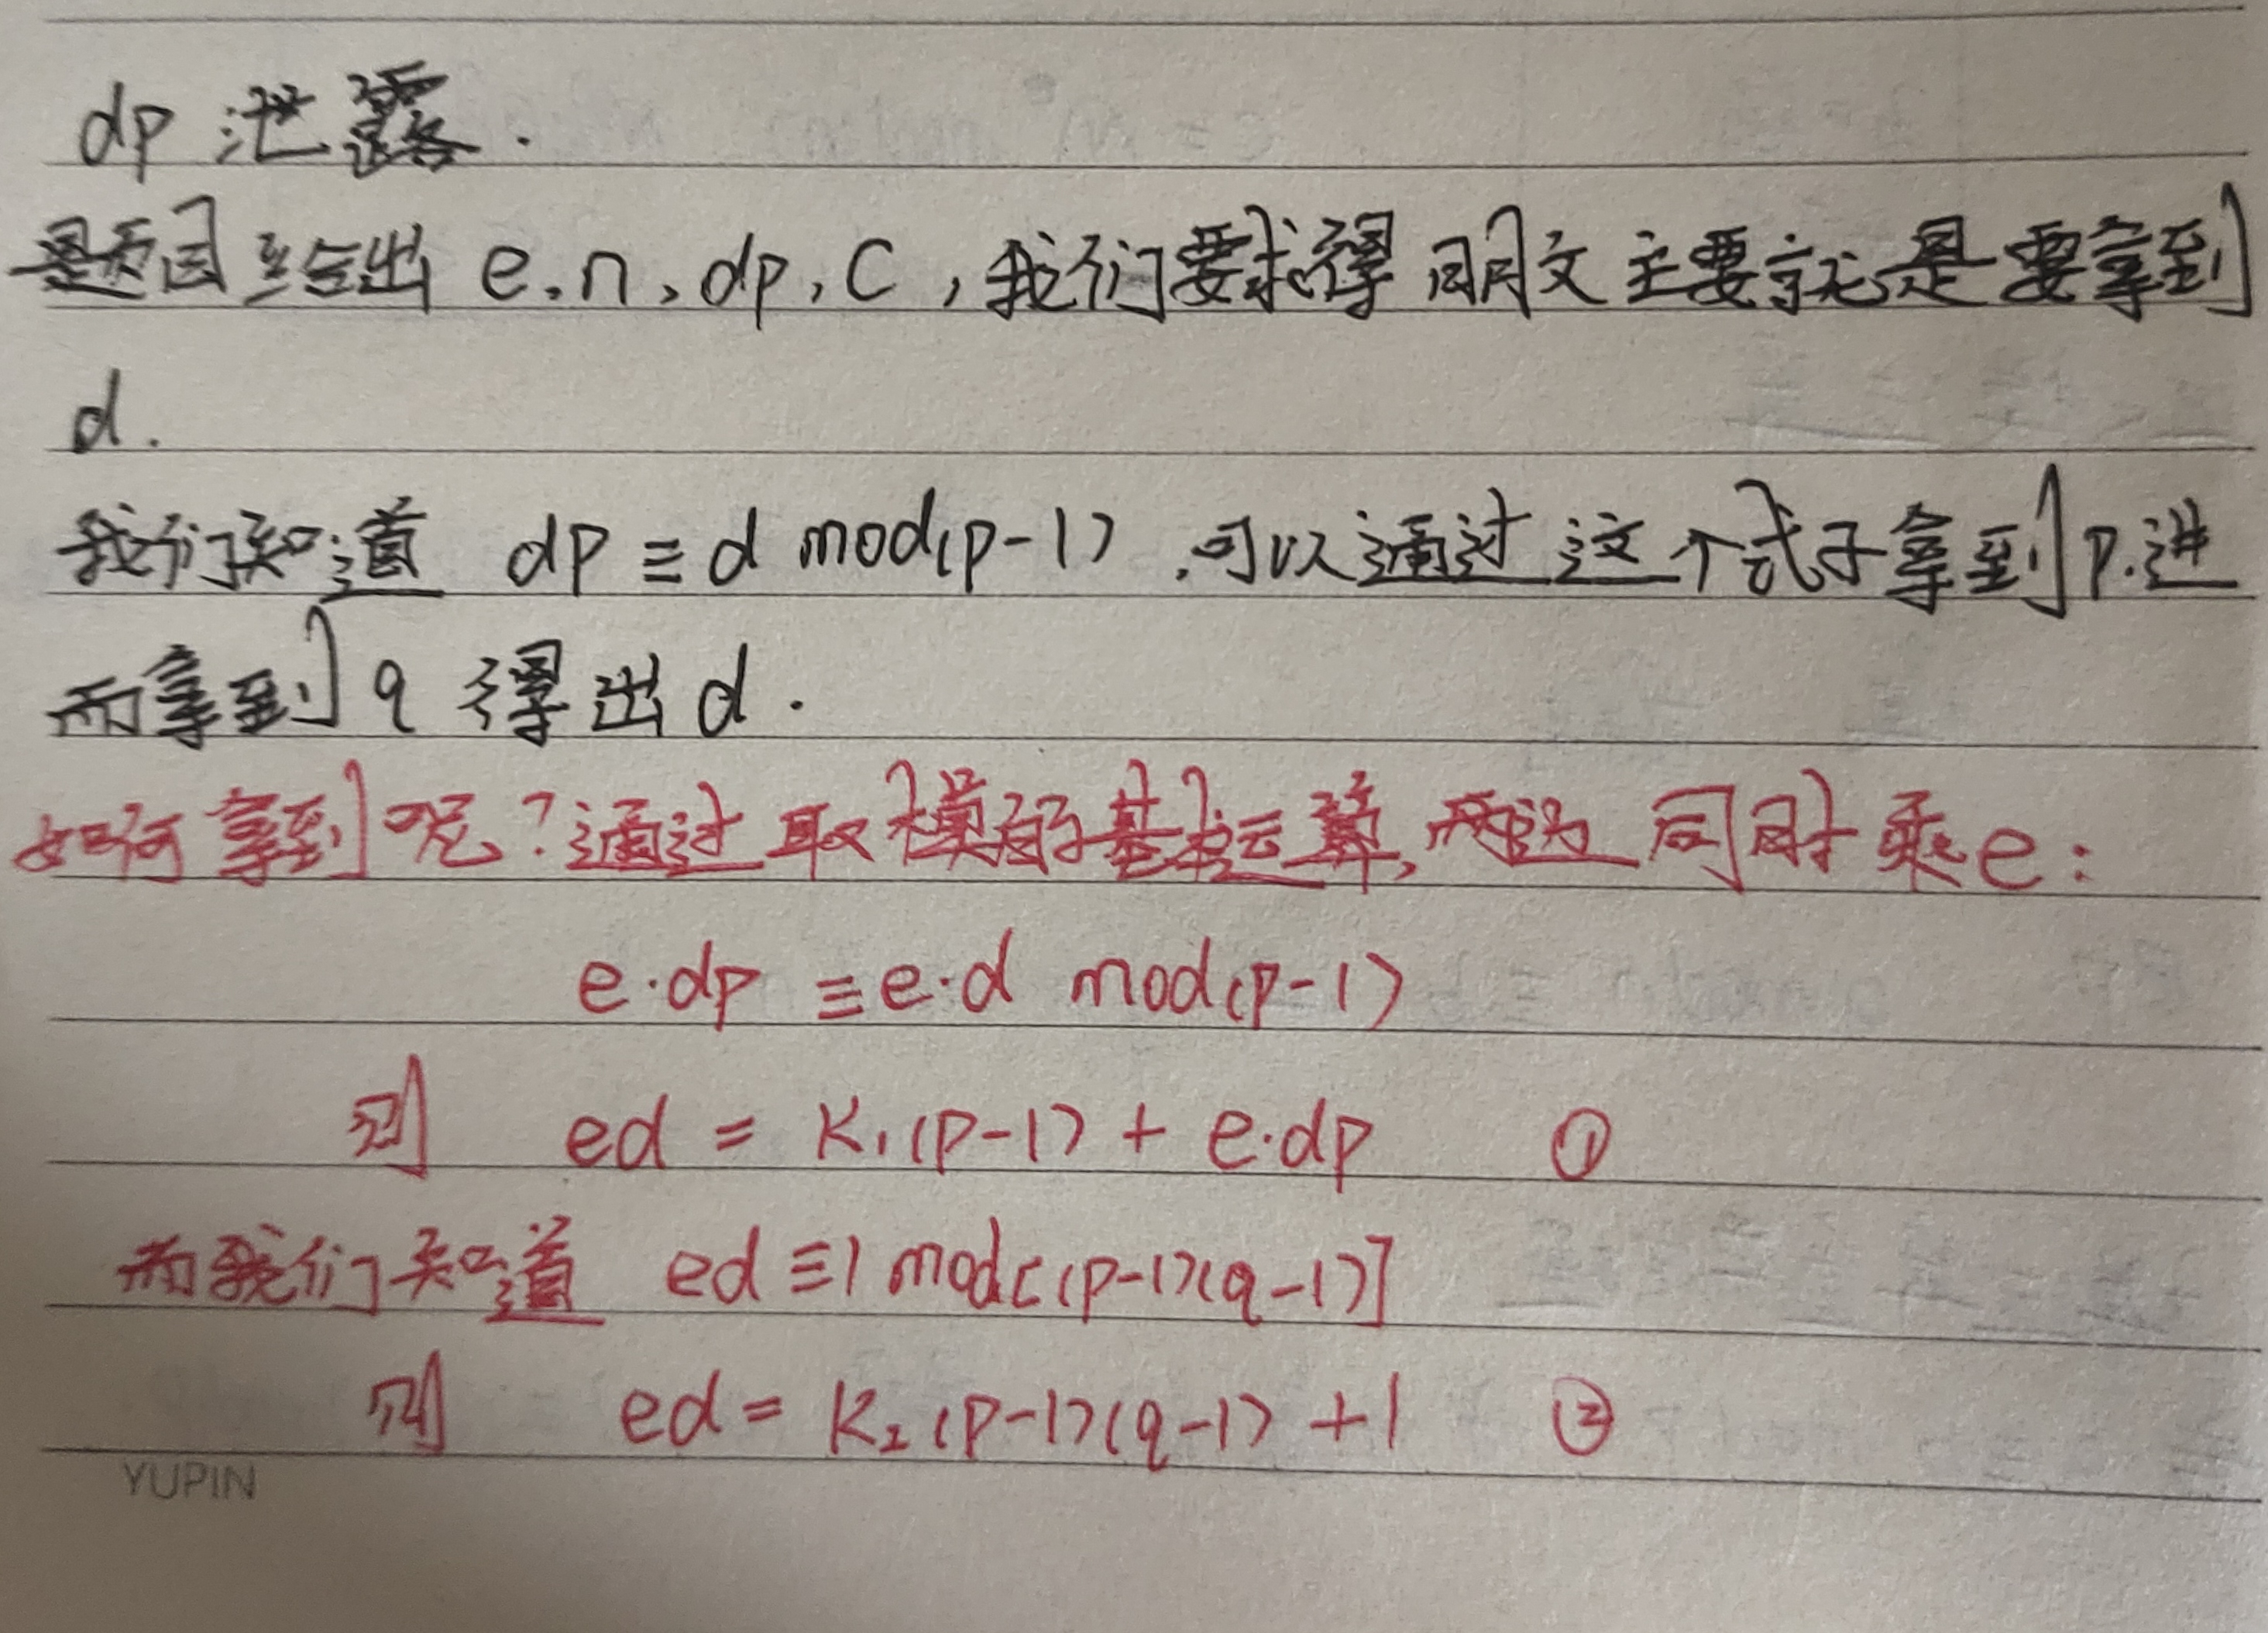 dp 泄露.
题目给出 e.n, dp, C, 我们要求得明文主要就是要拿到
d.
我们知道 dp ≡ d mod(p-1) , 可以通过这个式子拿到p.进
而拿到q 得出d.
如何拿到呢?通过取模的基本运算,两边同时乘e:
e·dp ≡ e·d mod(p-1)
则 ed = K₁(p-1) + e·dp ①
而我们知道 ed ≡ 1 mod[(p-1)(q-1)]
则 ed = K₂(p-1)(q-1) + 1 ②
YUPIN